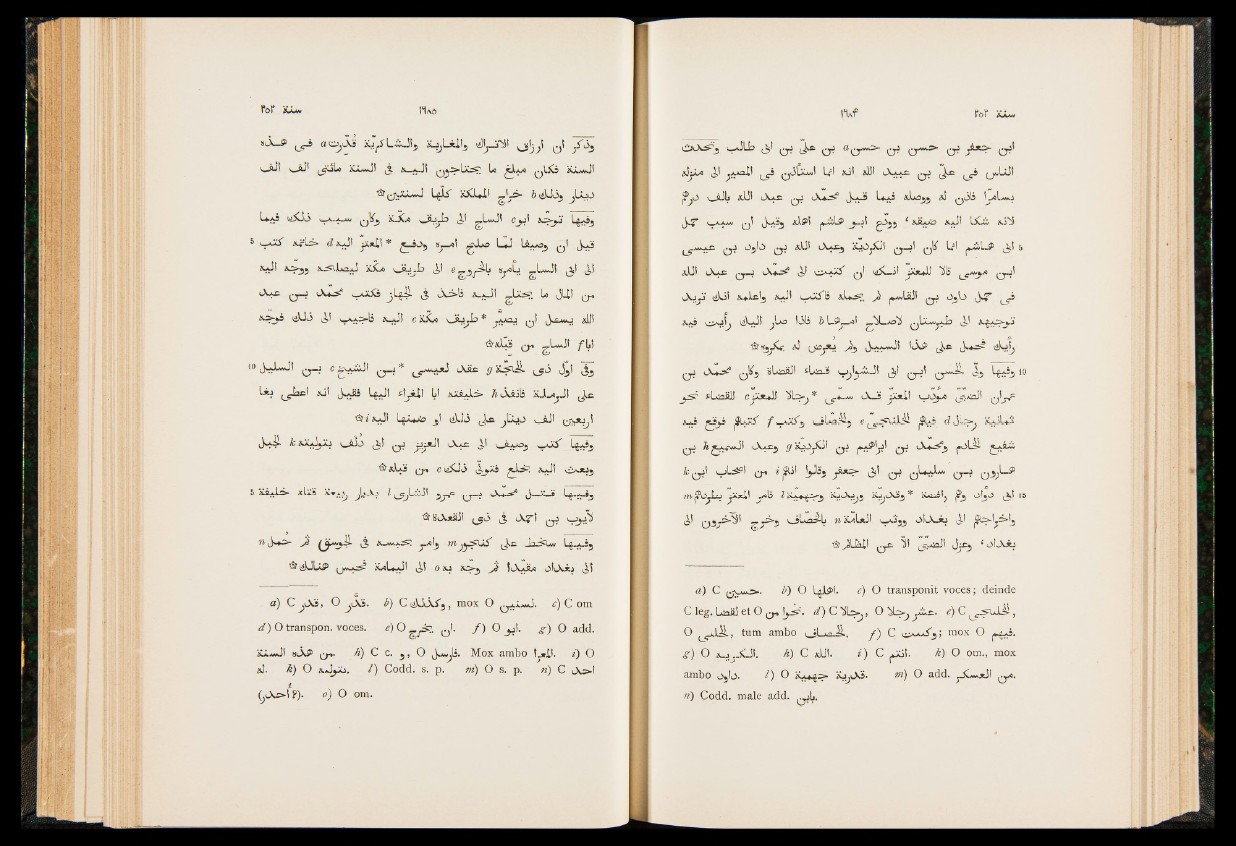 سنة ٢٥٢ ١٦٨۴
ابن جعفر بن حسن بن حسن a بن على بن ابى طالب وتحدّث
الناس فى على بن عبيد الله انه انما استأذن فى المصير الى منزله
بسامرّا فاذن له ووصله فيما قيل محمد بن عبد الله بالف درهم
لانه شكا اليه ضيقه، وودّع ابو هاشم اهله وقيل ان سبب حمل
5 ابى هاشم انما كان ابن الكرديّة وعبد الله بن داود بن عيسى
ابن موسى قالا للمعتزّ انك ان كتبت الى محمد بن عبد الله
فى حمل داود بن القاسم لم يحمله فاكتب اليه واعلمه انك تريد
توجيهه الى طبرستان لاصلاح امرها b فاذا صار اليك رأيت فيه
رأيك فحمل على هذا السبيل ولم يعرض له بمكروه ۞
10 وفيها ولى الحسن ابن ابى الشوارب قضاء القضاة وكان محمد بن
عمران الضبّى مؤدّب المعتزّ قد سمّى * رجالا للمعتزّ c للقضاء نحو
ثمانية رجال d فيهم الخلنجى e والخصّاف وكتب f كتبهم فوقع فيه
شفيع الخادم ومحمد بن ابراهيم بن الكرديّة g وعبد السميع h بن
هارون بن سليمان بن ابى جعفر وقالوا انهم i من اصحاب ابن k
15 ابى دواد وهم رافضة * وقدريّة وزيديّة وجهميّة l فامر المعتزّ بطردهم m
واخراجهم الى بغداد ووثب العامّة n بالخصّاف وخرج الآخرون الى
بغداد، وعزل الضبّى الّا عن المظالم ۞
a) C حسين. b) O اهلها. c) O transponit voces; deinde
C leg. لقضا et O نحوا من. d) C رجلا, O عشر رجلا. e) C الخلنجى,
O الخلنجى, tum ambo الحصاف. f) C وكتبت; mox O فيهم.
g) O الكريه. h) C الله. i) C انتم. k) O om., mox
ambo داود. l) O قدرية جهمية. m) O add. من العسكر.
n) Codd. male add. بابن.
١٦٨٥ سنة ٢٥٢
وذُكر ان ارزاق الاتراك والمغاربة والشاكريّة قُدّرت a فى هذه
السنة فكان مبلغ ما يحتاجون اليه فى السنة مائتى الف الف
دينار وذلك b خراج المملكة كلها لسنتين ۞
وفيها توجّه ابو c الساج الى طريق مكّة وكان سبب ذلك فيما
5 قيل ان وصيفا لمّا صلح امره ودفع * المعتزّ اليه d خاتمه كتب
الى ابى الساج يأمره بالخروج e الى طريق مكّة ليصلحه ووجّه اليه
من المال ما يحتاج اليه فاخذ فى الجهاز فكتب محمد بن عبد
الله يسعل ان يصيّر * طريق مكّة c اليه فاجيب الى ذلك فوجّه
ابا f الساج من قبله ۞
10 وفى اوّل ذى الحجّة g عقد لعيسى * بن الشيخ c بن السليل
على الرملة فانفذ h خليفته ابا المغراء اليها فقيل انه اعطى بغا
اربعين الف دينار على ذلك او ضمنها اليه i ۞
وفيها كتب وصيف الى عبد العزيز بن ابى دلف بتوليته k الجبل
وبعث اليه بخلع فتولّى ذلك c من قبله ۞
5 وفيها قتل محمد بن عمرو الشارى l بديار ربيعة قتله خليفة
لايوب بن احمد فى ذى القعدة ۞
وفيها سخط على كنجور m وامر بحبسه فى الجوسق ثم حمل n
الى بغداد مقيّدا ثم وجّه به o الى اليمامة فحبس هنالك ۞
a) C قدر, O قدّر. b) C وكذلك, mox O لسنتين. c) C om
d) O transpon. voces. e) O ان يخرج. f) O ابو. g) O add.
من هذه السنة. h) C c. و, O فارسل. Mox ambo المعرا. i) O
له. k) O بتوليه. l) Codd. s. p. m) O s. p. n) C احد
(أُحدر ?). o) O om.